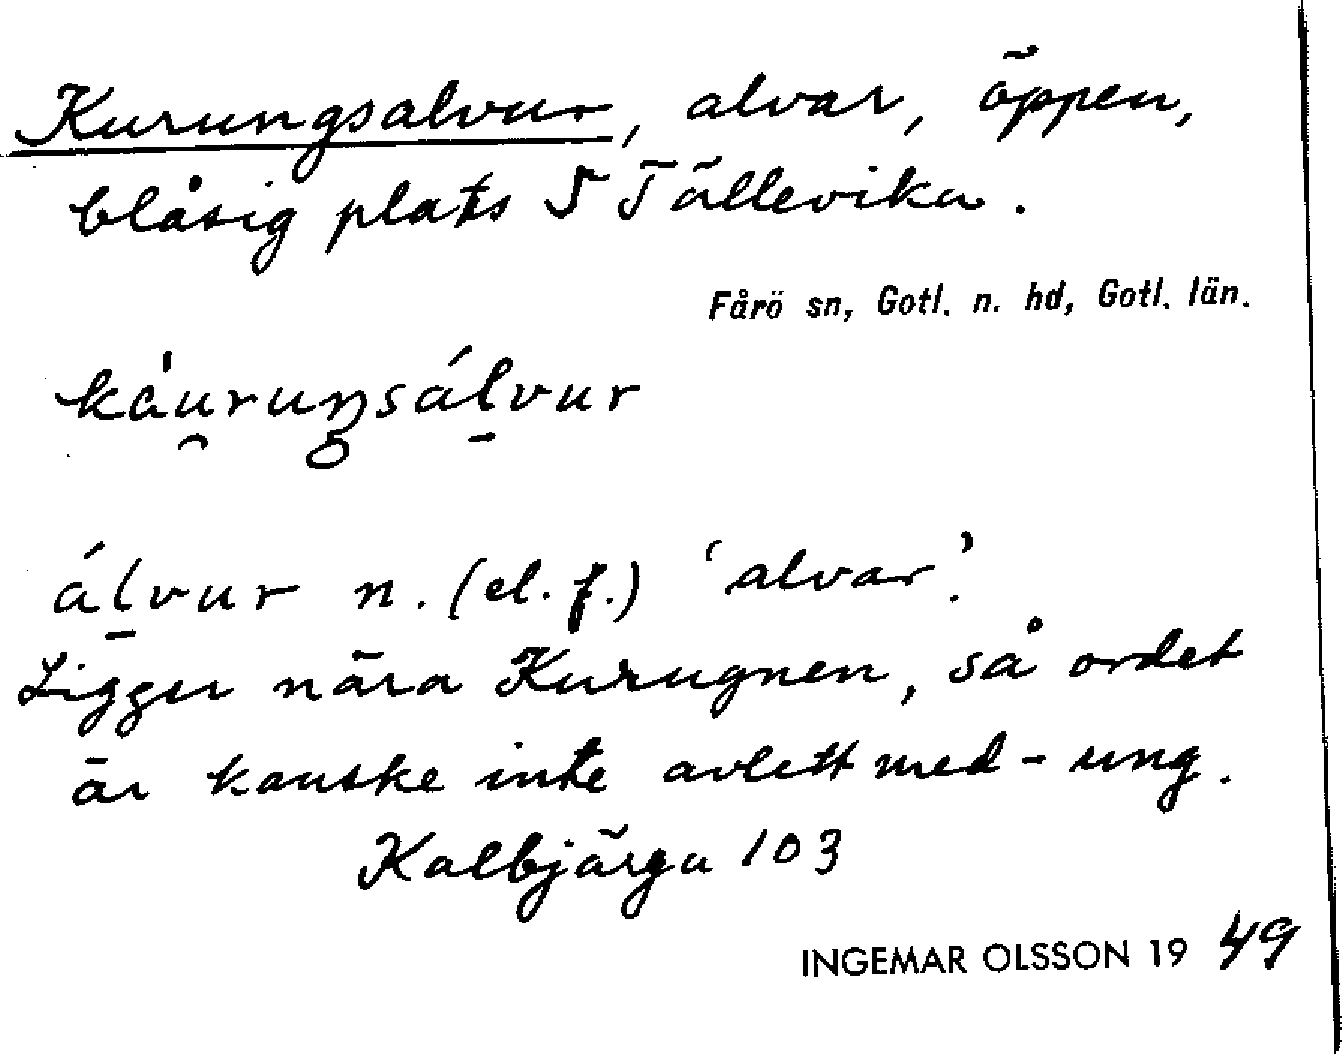 Kurungsalvur, alvar, öppen,
blåsig plats S Tällevika.
Fårö sn, Gotl. n. hd, Gotl. län.
ká̍u̯ruŋsáḻvur
áḻvur n. (el. f.) 'alvar'.
Ligger nära Kurugnen, så ordet
är kanske inte avlett med -ung.
Kalbjärga 103
INGEMAR OLSSON 19 49